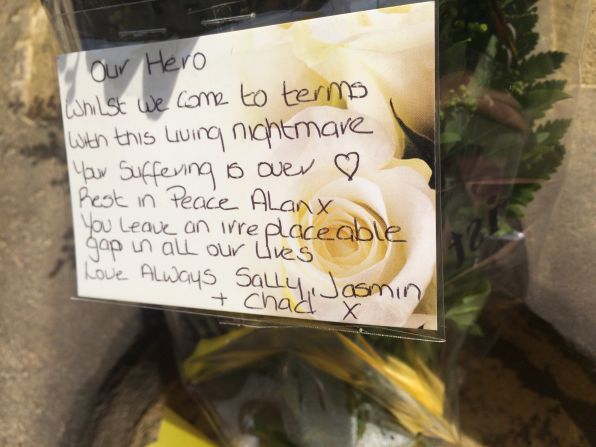 Our Hero
Whilst we come to terms
with this living nightmare
Your suffering is over ♡
Rest in Peace Alan x
You leave an irreplaceable
gap in all our lives
Love Always Sally, Jasmin
+ Chad x